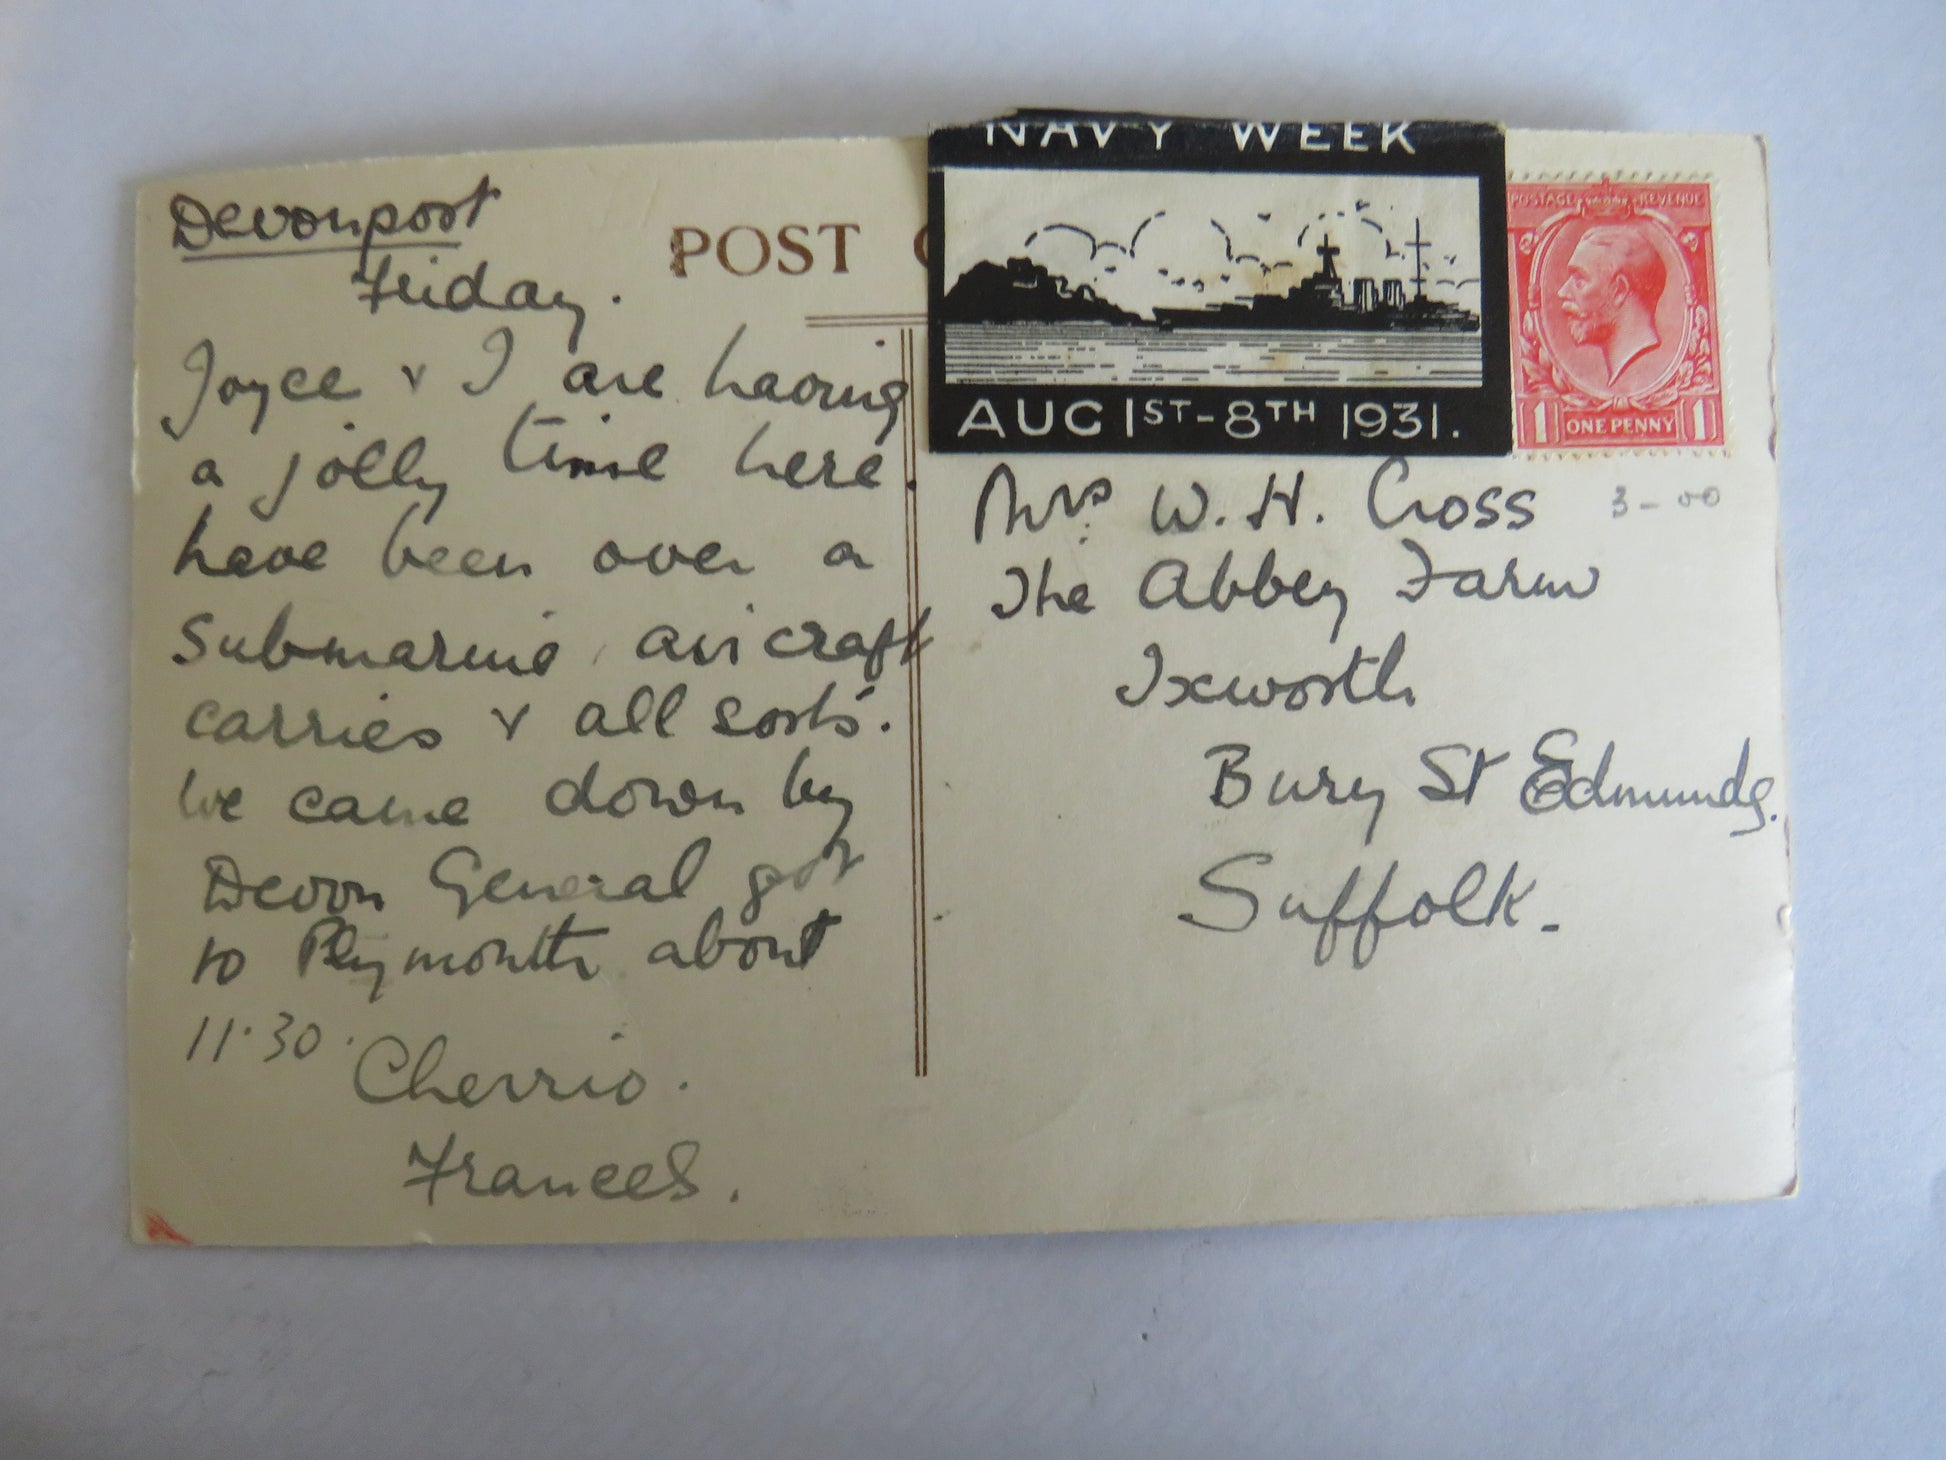 Devonport
Friday.
Joyce & I are having
a jolly time here.
have been over a
submarine, aircraft
carries & all sorts.
We came down by
Devon General got
to Plymouth about
11.30.
Cherrio.
Frances.
POST C
NAVY WEEK
AUG 1ST-8TH 1931.
POSTAGE REVENUE
1 ONE PENNY 1
3-00
Mrs W. H. Cross
The Abbey Farm
Ixworth
Bury St Edmunds.
Suffolk.